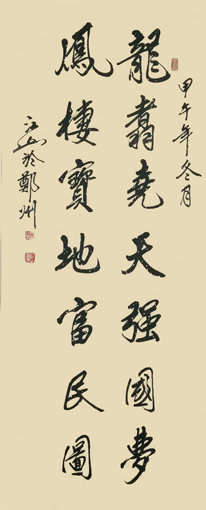 甲午年冬月
龍翥堯天强國夢
鳳棲寶地富民圖
江山於鄭州